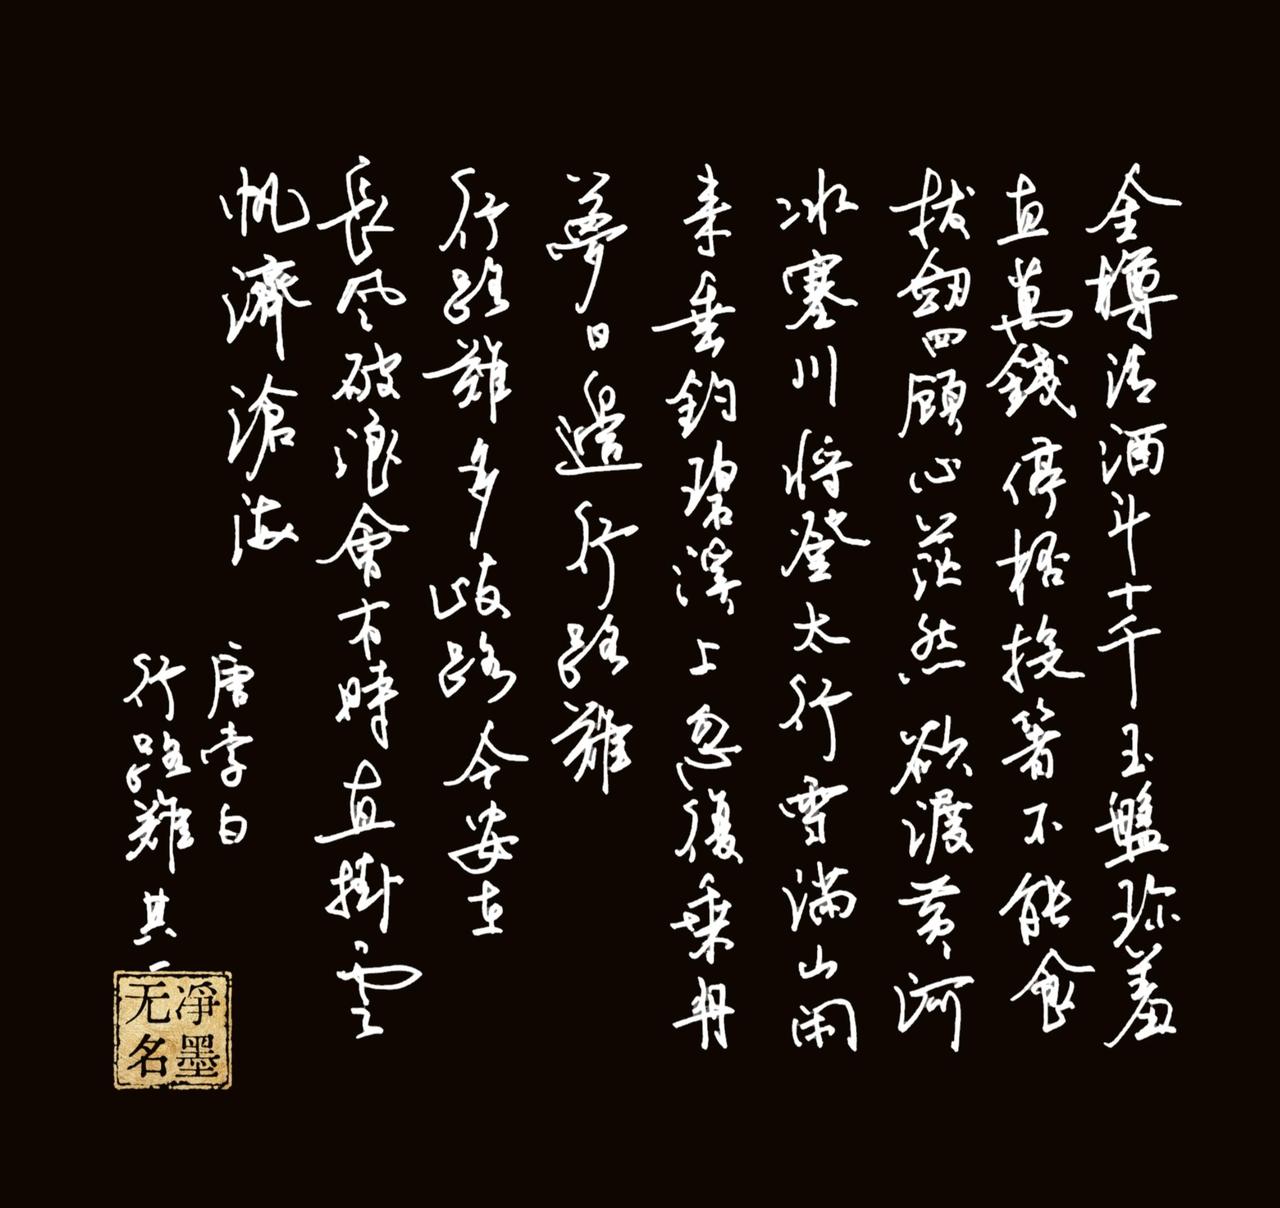 金樽清酒斗十千玉盤珍羞
直萬錢停杯投箸不能食
拔劒四顧心茫然欲渡黄河
冰塞川將登太行雪满山闲
来垂釣碧溪上忽復乗舟
夢日邉行路難
行路難多岐路今安在
長风破浪會有時直掛雲
帆濟滄海
唐李白
行路難其一
凈墨
无名